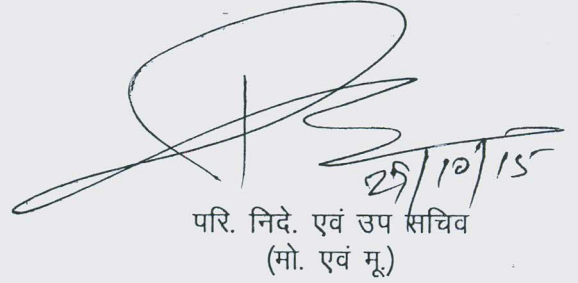 29/10/15
परि. निदे. एवं उप सचिव
(मो. एवं मू.)